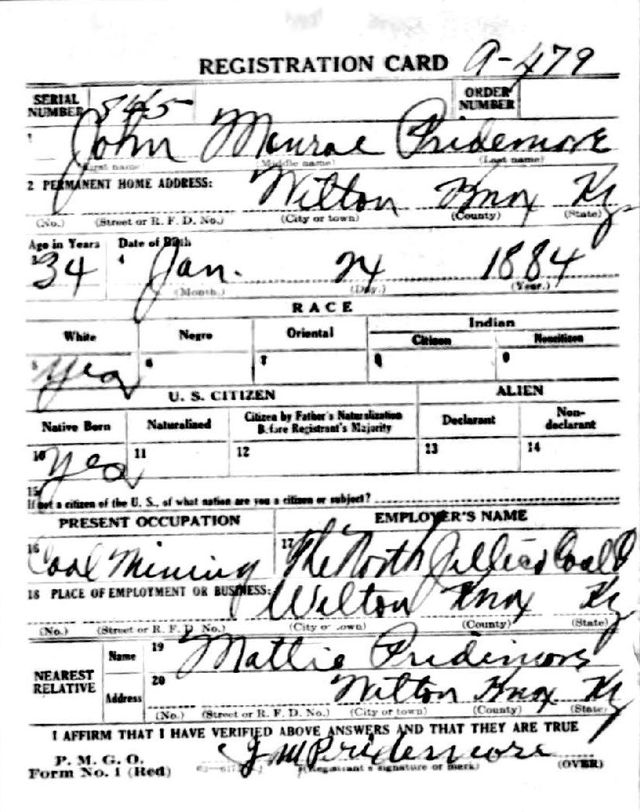 REGISTRATION CARD A-479
SERIAL NUMBER 545 ORDER NUMBER
1 John Monroe Pridemore
(First name) (Middle name) (Last name)
2 PERMANENT HOME ADDRESS: Wilton Knox Ky
(No.) (Street or R. F. D. No.) (City or town) (County) (State)
Age in Years Date of Birth
3 34 4 Jan. 24 1884
(Month.) (Day.) (Year.)
RACE
White Negro Oriental Indian
Citizen Noncitizen
5 Yes 6 7 8 9
U. S. CITIZEN ALIEN
Native Born Naturalized Citizen by Father's Naturalization Before Registrant's Majority Declarant Non-declarant
10 Yes 11 12 13 14
15
If not a citizen of the U. S., of what nation are you a citizen or subject?
PRESENT OCCUPATION EMPLOYER'S NAME
16 Coal Mining 17 The North Jellico Coal
18 PLACE OF EMPLOYMENT OR BUSINESS: Wilton Knox Ky
(No.) (Street or R. F. D. No.) (City or town) (County) (State)
NEAREST RELATIVE Name 19 Mattie Pridemore
Address 20 Wilton Knox Ky
(No.) (Street or R. F. D. No.) (City or town) (County) (State)
I AFFIRM THAT I HAVE VERIFIED ABOVE ANSWERS AND THAT THEY ARE TRUE
P. M. G. O.
Form No. 1 (Red) J M Pridemore
(Registrant's signature or mark) (OVER)